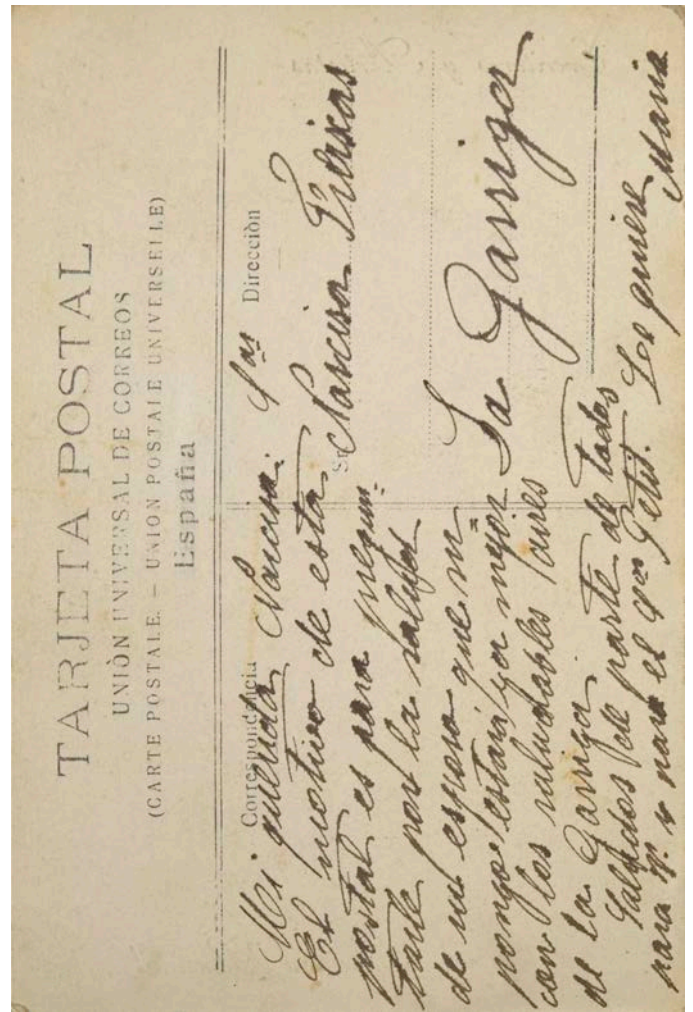 TARJETA POSTAL
UNIÓN UNIVERSAL DE CORREOS
(CARTE POSTALE. – UNION POSTALE UNIVERSELLE)
España
Correspondencia
Dirección
Mi querida Narcisa.
El motivo de esta
postal es para pregun-
tarle por la salud
de su esposo que su
pongo estará ya mejor
con los saludables aires
de la Garriga
Saludos de parte de todos
para V. y para el Sor Petit. Le quiere
Maria
Sras
Sr
Narcisa Freixas
La Garriga